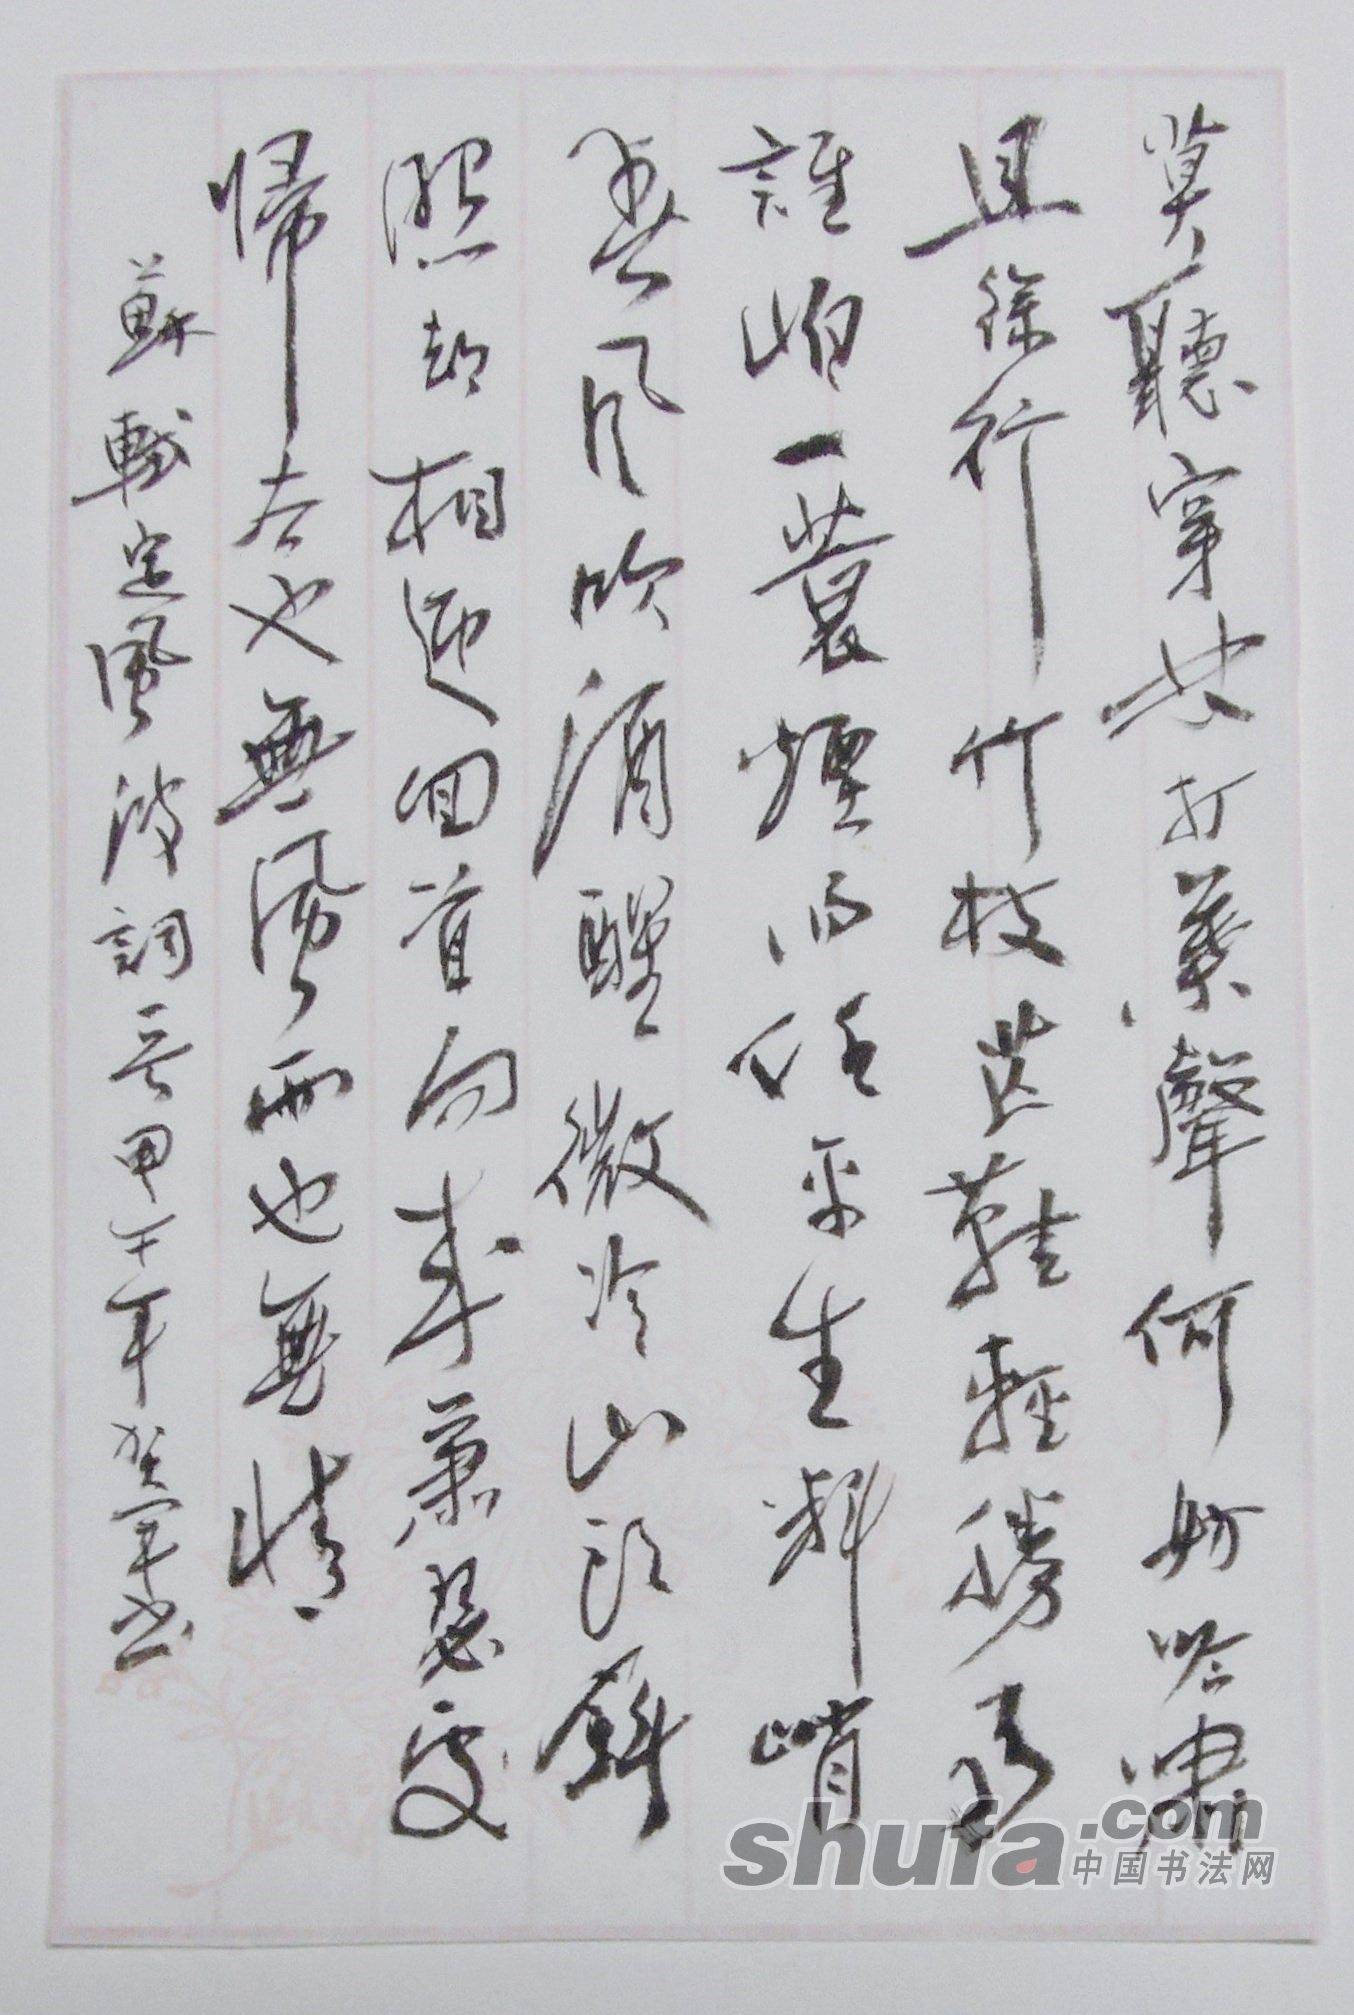 莫聽穿林打葉聲何妨吟嘯
且徐行竹枝芒鞋輕勝馬
誰怕一蓑煙雨任平生料峭
春風吹酒醒微冷山頭斜
照却相迎回首向来蕭瑟處
歸去也無風雨也無情
蘇軾定風波詞一首甲午年
shufa.com
中国书法网